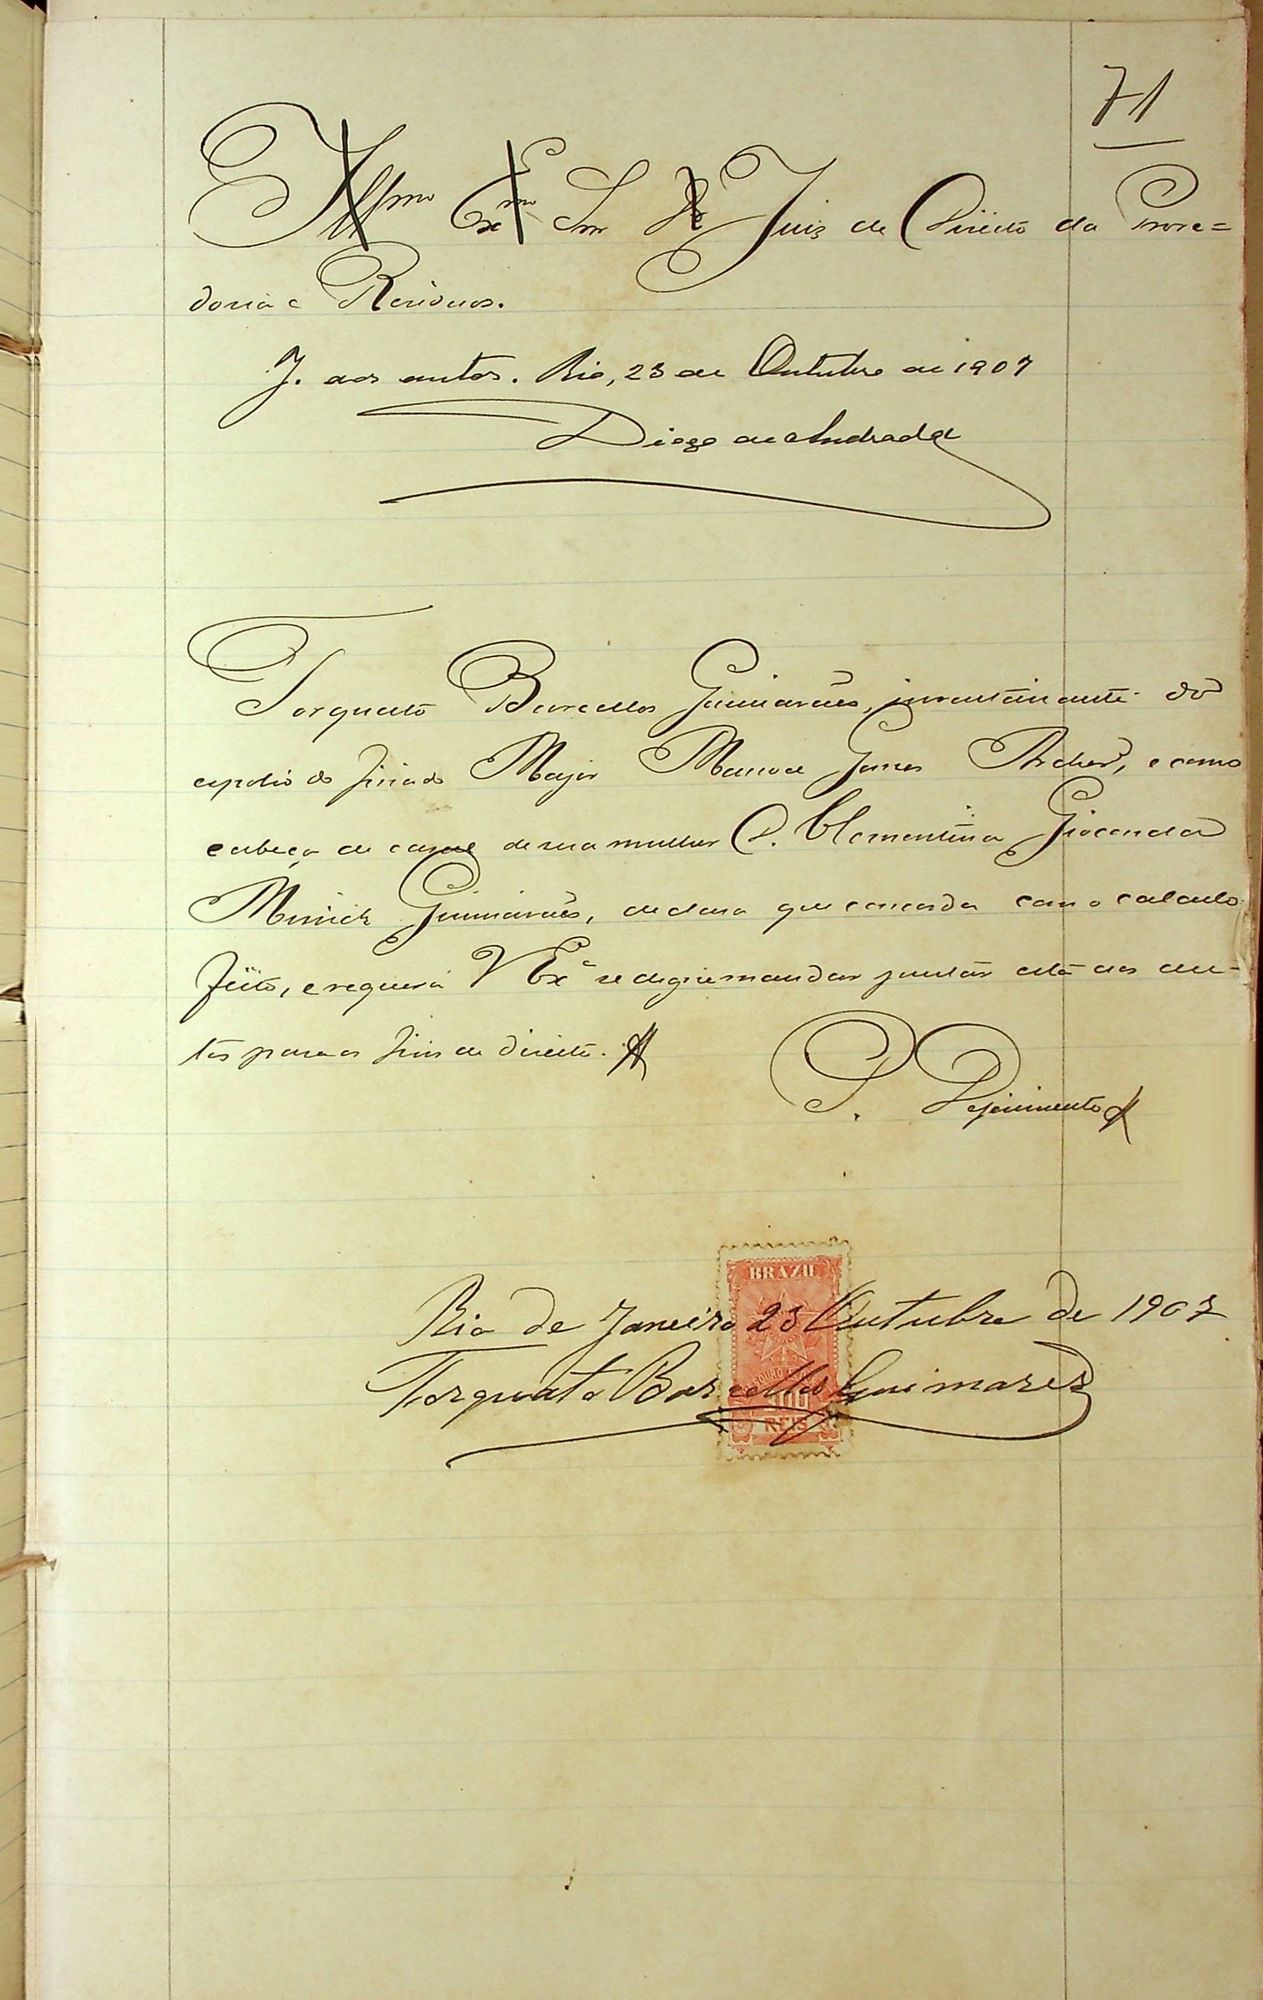 71
Illmo Exmo Snr Dr Juiz de Direito da Prove=
doria e Residuos.
J. aos autos. Rio, 23 de Outubro de 1907
Diogo de Andrade
Torquato Barcellos Guimarães, inventariante do
espolio do finado Major Manoel Gomes Archer, e como
cabeça de casal de sua mulher D. Clementina Gioconda
Guimarães, declara que concorda com o calculo
feito, e requer a V Exª se digne mandar juntar esta aos au-
tos para os fins de direito.
P. Deferimento
BRAZIL
Rio de Janeiro 23 Outubro de 1907
Torquato Barcellos Guimarães
300
REIS